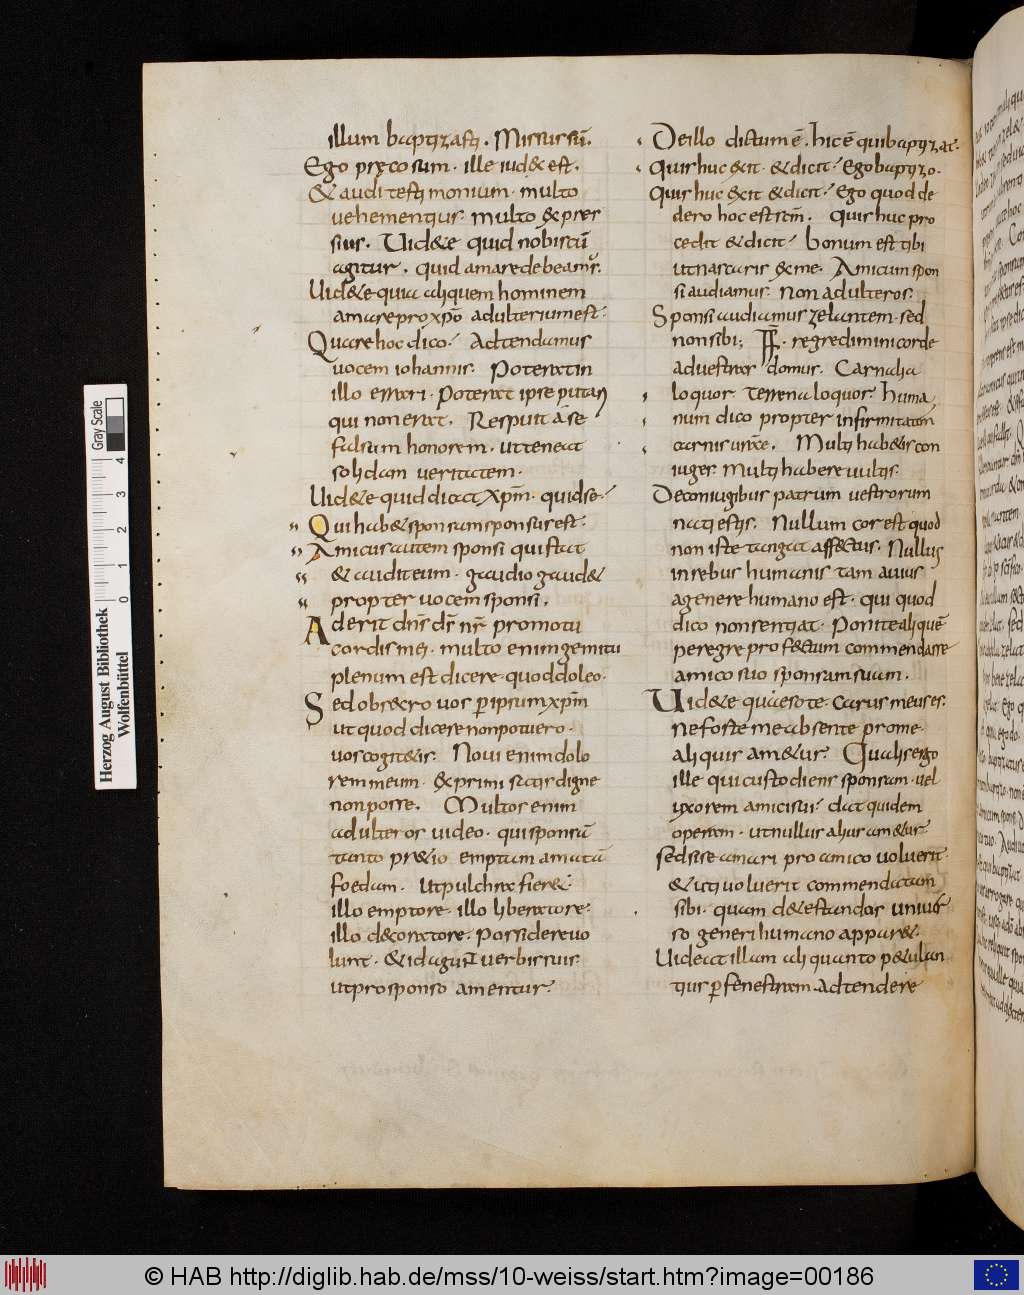 illum baptizasti. Missus sū.
Ego pręco sum. ille iudex est.
& audi testimonium. multo
uehementius. multo expres
sius. Uidete quid nobiscū
agitur. quid amare debeam᷒.
Uidete quia aliquem hominem
amare pro xp̄o adulterium est.
Quare hoc dico? Adtendamus
uocem iohannis. Poterat in
illo errari. Poterat ipse putari
qui non erat. Respuit a se
falsum honorem. ut teneat
solidam ueritatem.
Uidete quid dicat xp̄m. quid se?
Qui habet sponsam sponsus est.
Amicus autem sponsi qui stat
& audit eum. gaudio gaudet
propter uocem sponsi.
Aderit dn̄s ds̄ nr̄ promotu
cordis mei. multo enim gemitu
plenum est dicere. quod doleo.
Sed obsecro uos p ipsum xp̄m
ut quod dicere non potuero.
uos cogitetis. Noui enim dolo
rem meum. & exprimi satis digne
non posse. Multos enim
adulteros uideo. qui sponsā
tanto pretio emptam amatā
foedam. ut pulchra fieret.
illo emptore. illo liberatore.
illo decoratore. Possidere uo
lunt. & id agunt uerbis suis.
ut pro sponso amentur.
De illo dictum ē. hic ē qui baptizat.
Quis huc exit. & dicit? Ego baptizo.
Quis huc exit & dicit? Ego quod de
dero hoc est sc̄m. Quis huc pro
cedit & dicit? bonum est tibi
ut nascaris ex me. Amicum spon
si audiamus. non adulteros.
Sponsi audiamus zelantem. sed
non sibi; regredimini corde
ad uestras domus. Carnalia
loquor. terrena loquor. huma
num dico propter infirmitatem
carnis uestrae. Multi habetis con
iuges. multi habere uultis.
De coniugibus patrum uestrorum
nati estis. Nullum cor est quod
non iste tangat affectus. Nullus
in rebus humanis tam auius
a genere humano est. qui quod
dico non sentiat. Ponite aliquē
peregre profectum commendasse
amico suo sponsam suam.
Uidete quaeso te. carus meus es.
ne foste me absente pro me
aliquis ametur. Qualis ergo
ille qui custodiens sponsam. uel
uxorem amici sui? dat quidem
operam. ut nullus alius ametur?
sed si se amari pro amico uoluerit.
& uti uoluerit commendatam
sibi. quam detestandus uniuer
so generi humano apparet.
Uideat illam aliquanto petulan
tius p fenestram. adtendere
Herzog August Bibliothek
Wolfenbüttel
Gray Scale
0 1 2 3 4
© HAB http://diglib.hab.de/mss/10-weiss/start.htm?image=00186